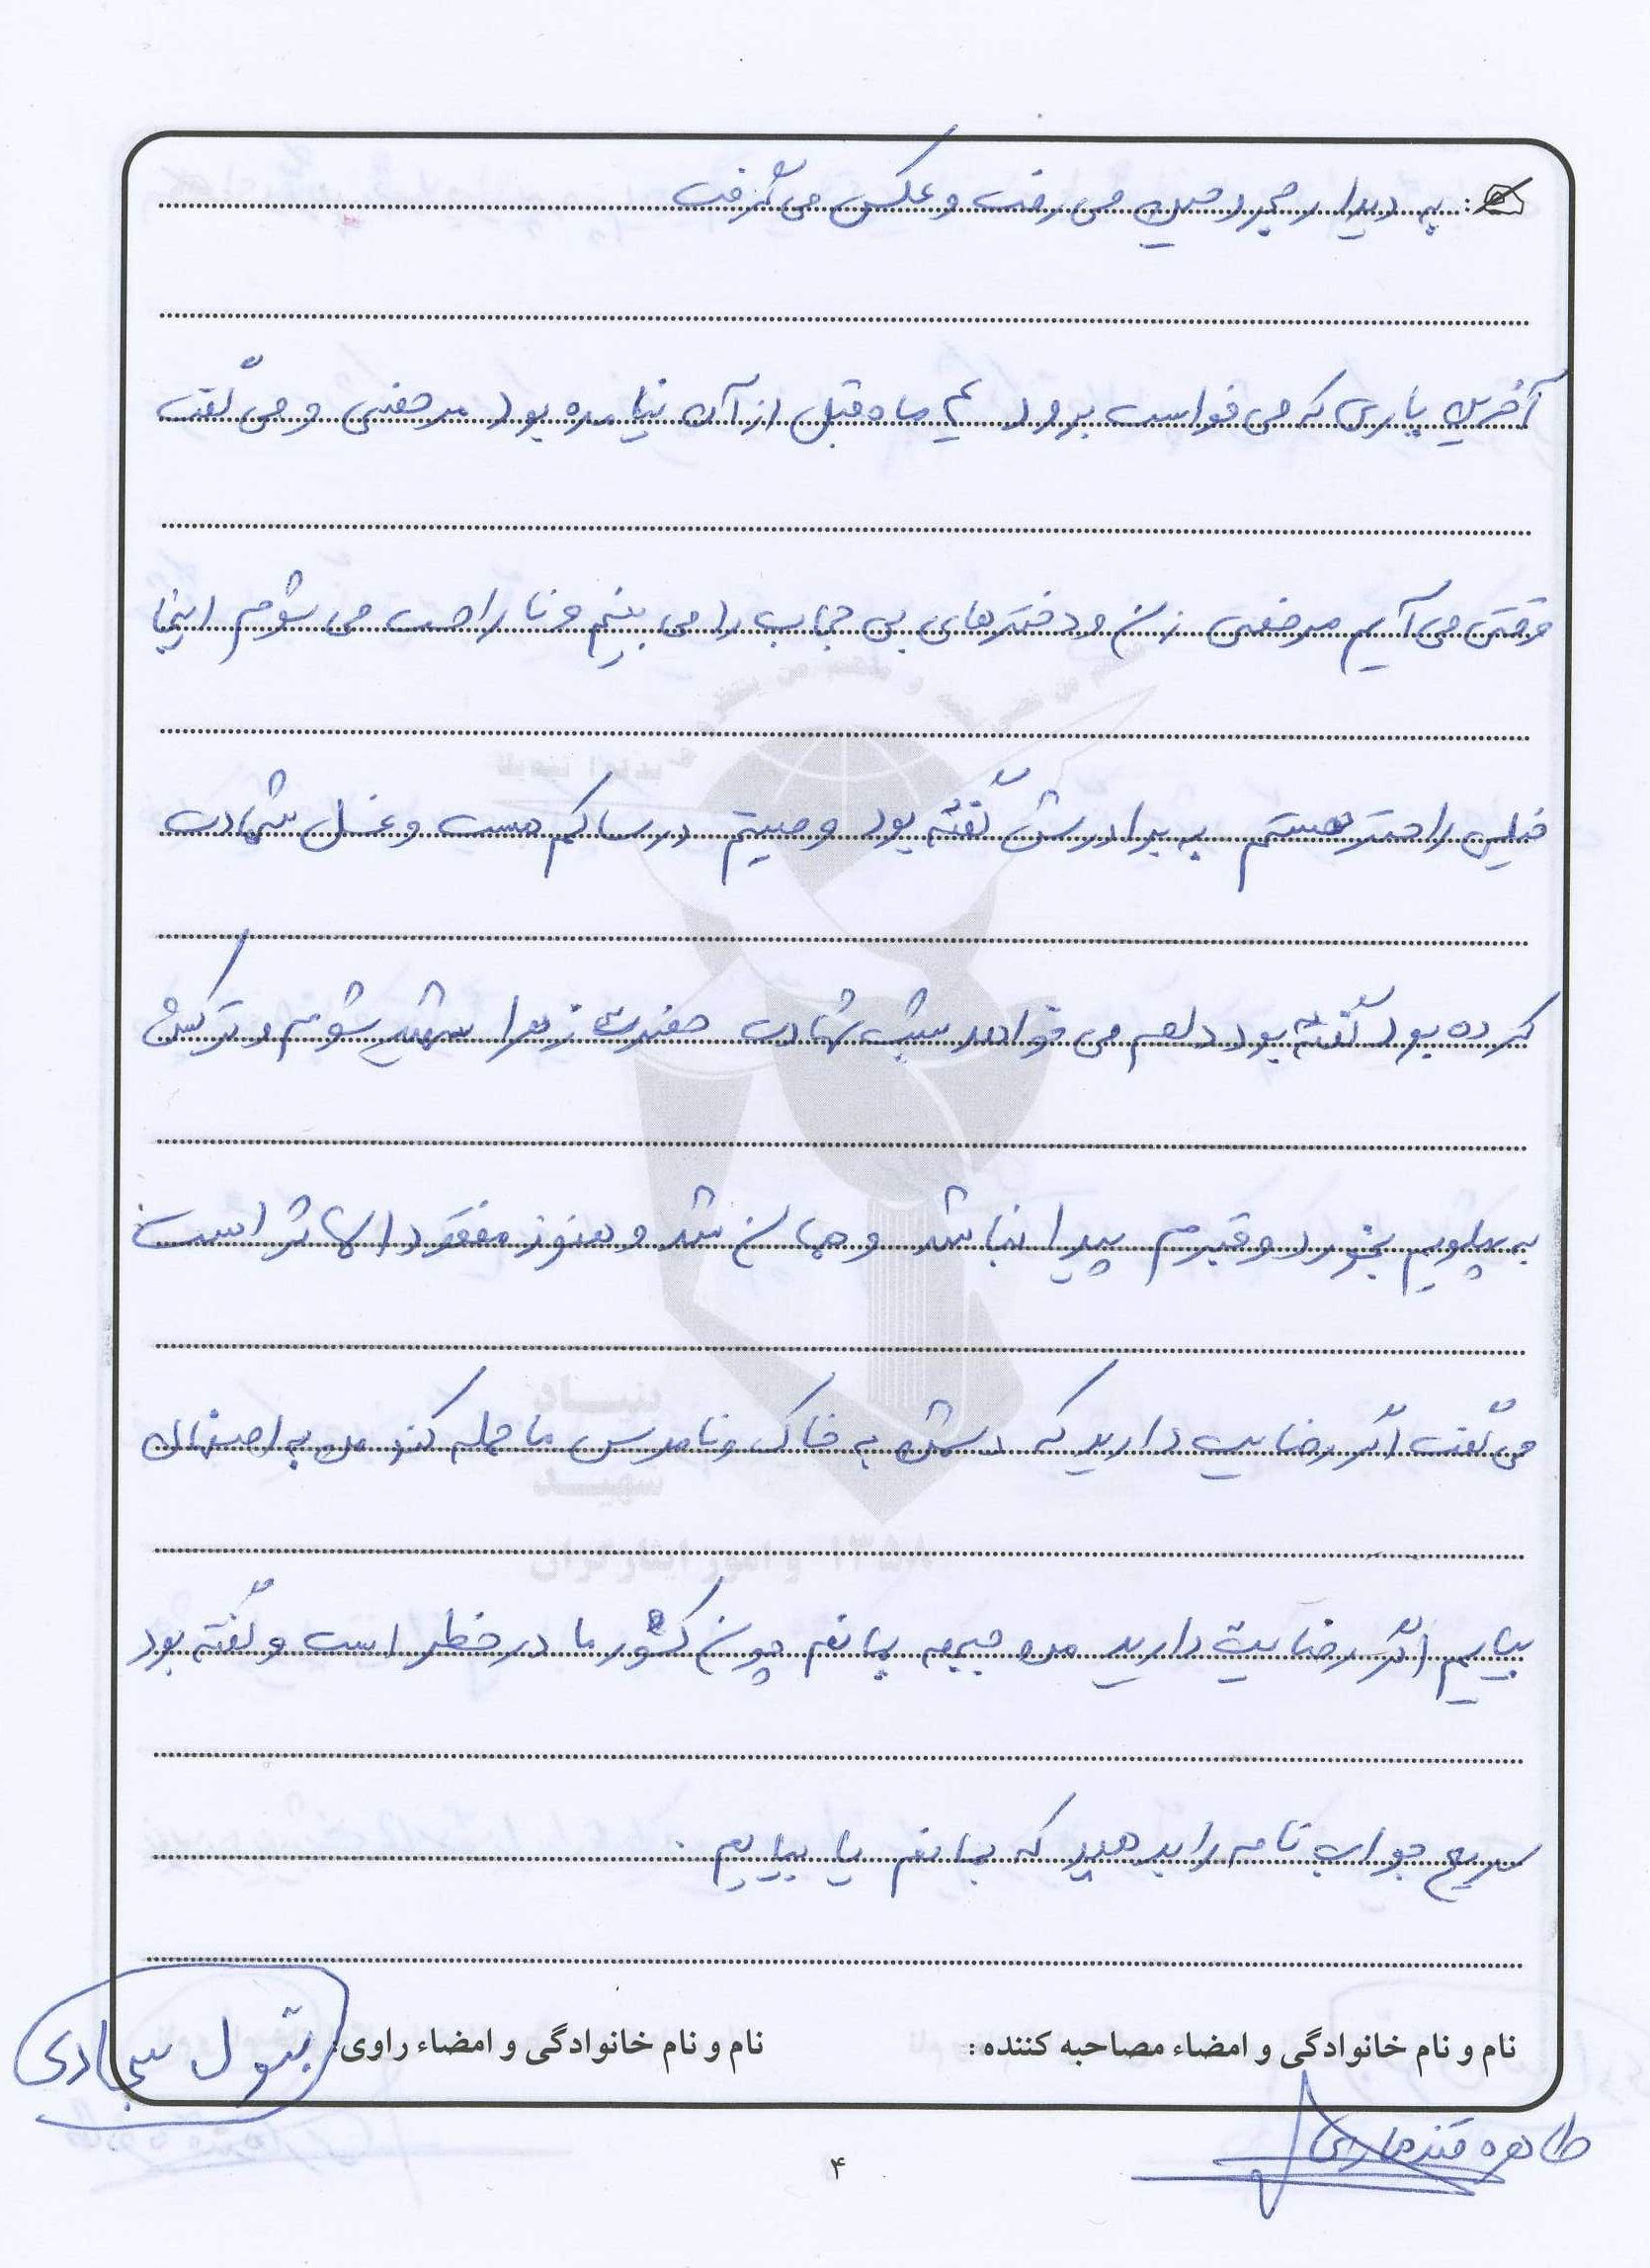 به دیدار مجروحین می رفت و عکس می گرفت
آخرین باری که می خواست برود ماه قبل از آن نیامده بود مرخصی و می گفت
وقتی می آیم مرخصی زن و دخترهای بی حجاب را می بینم و ناراحت می شوم اینجا
خیلی راحتتر هستم به برادرش گفته بود وصیتم در ساکم هست و غسل شهادت
کرده بود گفته بود دلم می خواهد شب شهادت حضرت زهرا شهید شوم و ترکش
به پهلویم بخورد و قبرم پیدا نباشد و همان شد و هنوز مفقودالاثر است
می گفت اگر رضایت دارید که دشمن به خاک و ناموس ما حمله کند من به اصفهان
بیایم اگر رضایت دارید من جبهه بمانم چون کشور ما در خطر است و گفته بود
سریع جواب نامه را بدهید که بمانم یا بیایم.
نام و نام خانوادگی و امضاء مصاحبه کننده : نام و نام خانوادگی و امضاء راوی: بتول سجادی
طاهره قندهاری
۴
بنیاد
شهید
۱۳۵۸ و امور ایثارگران